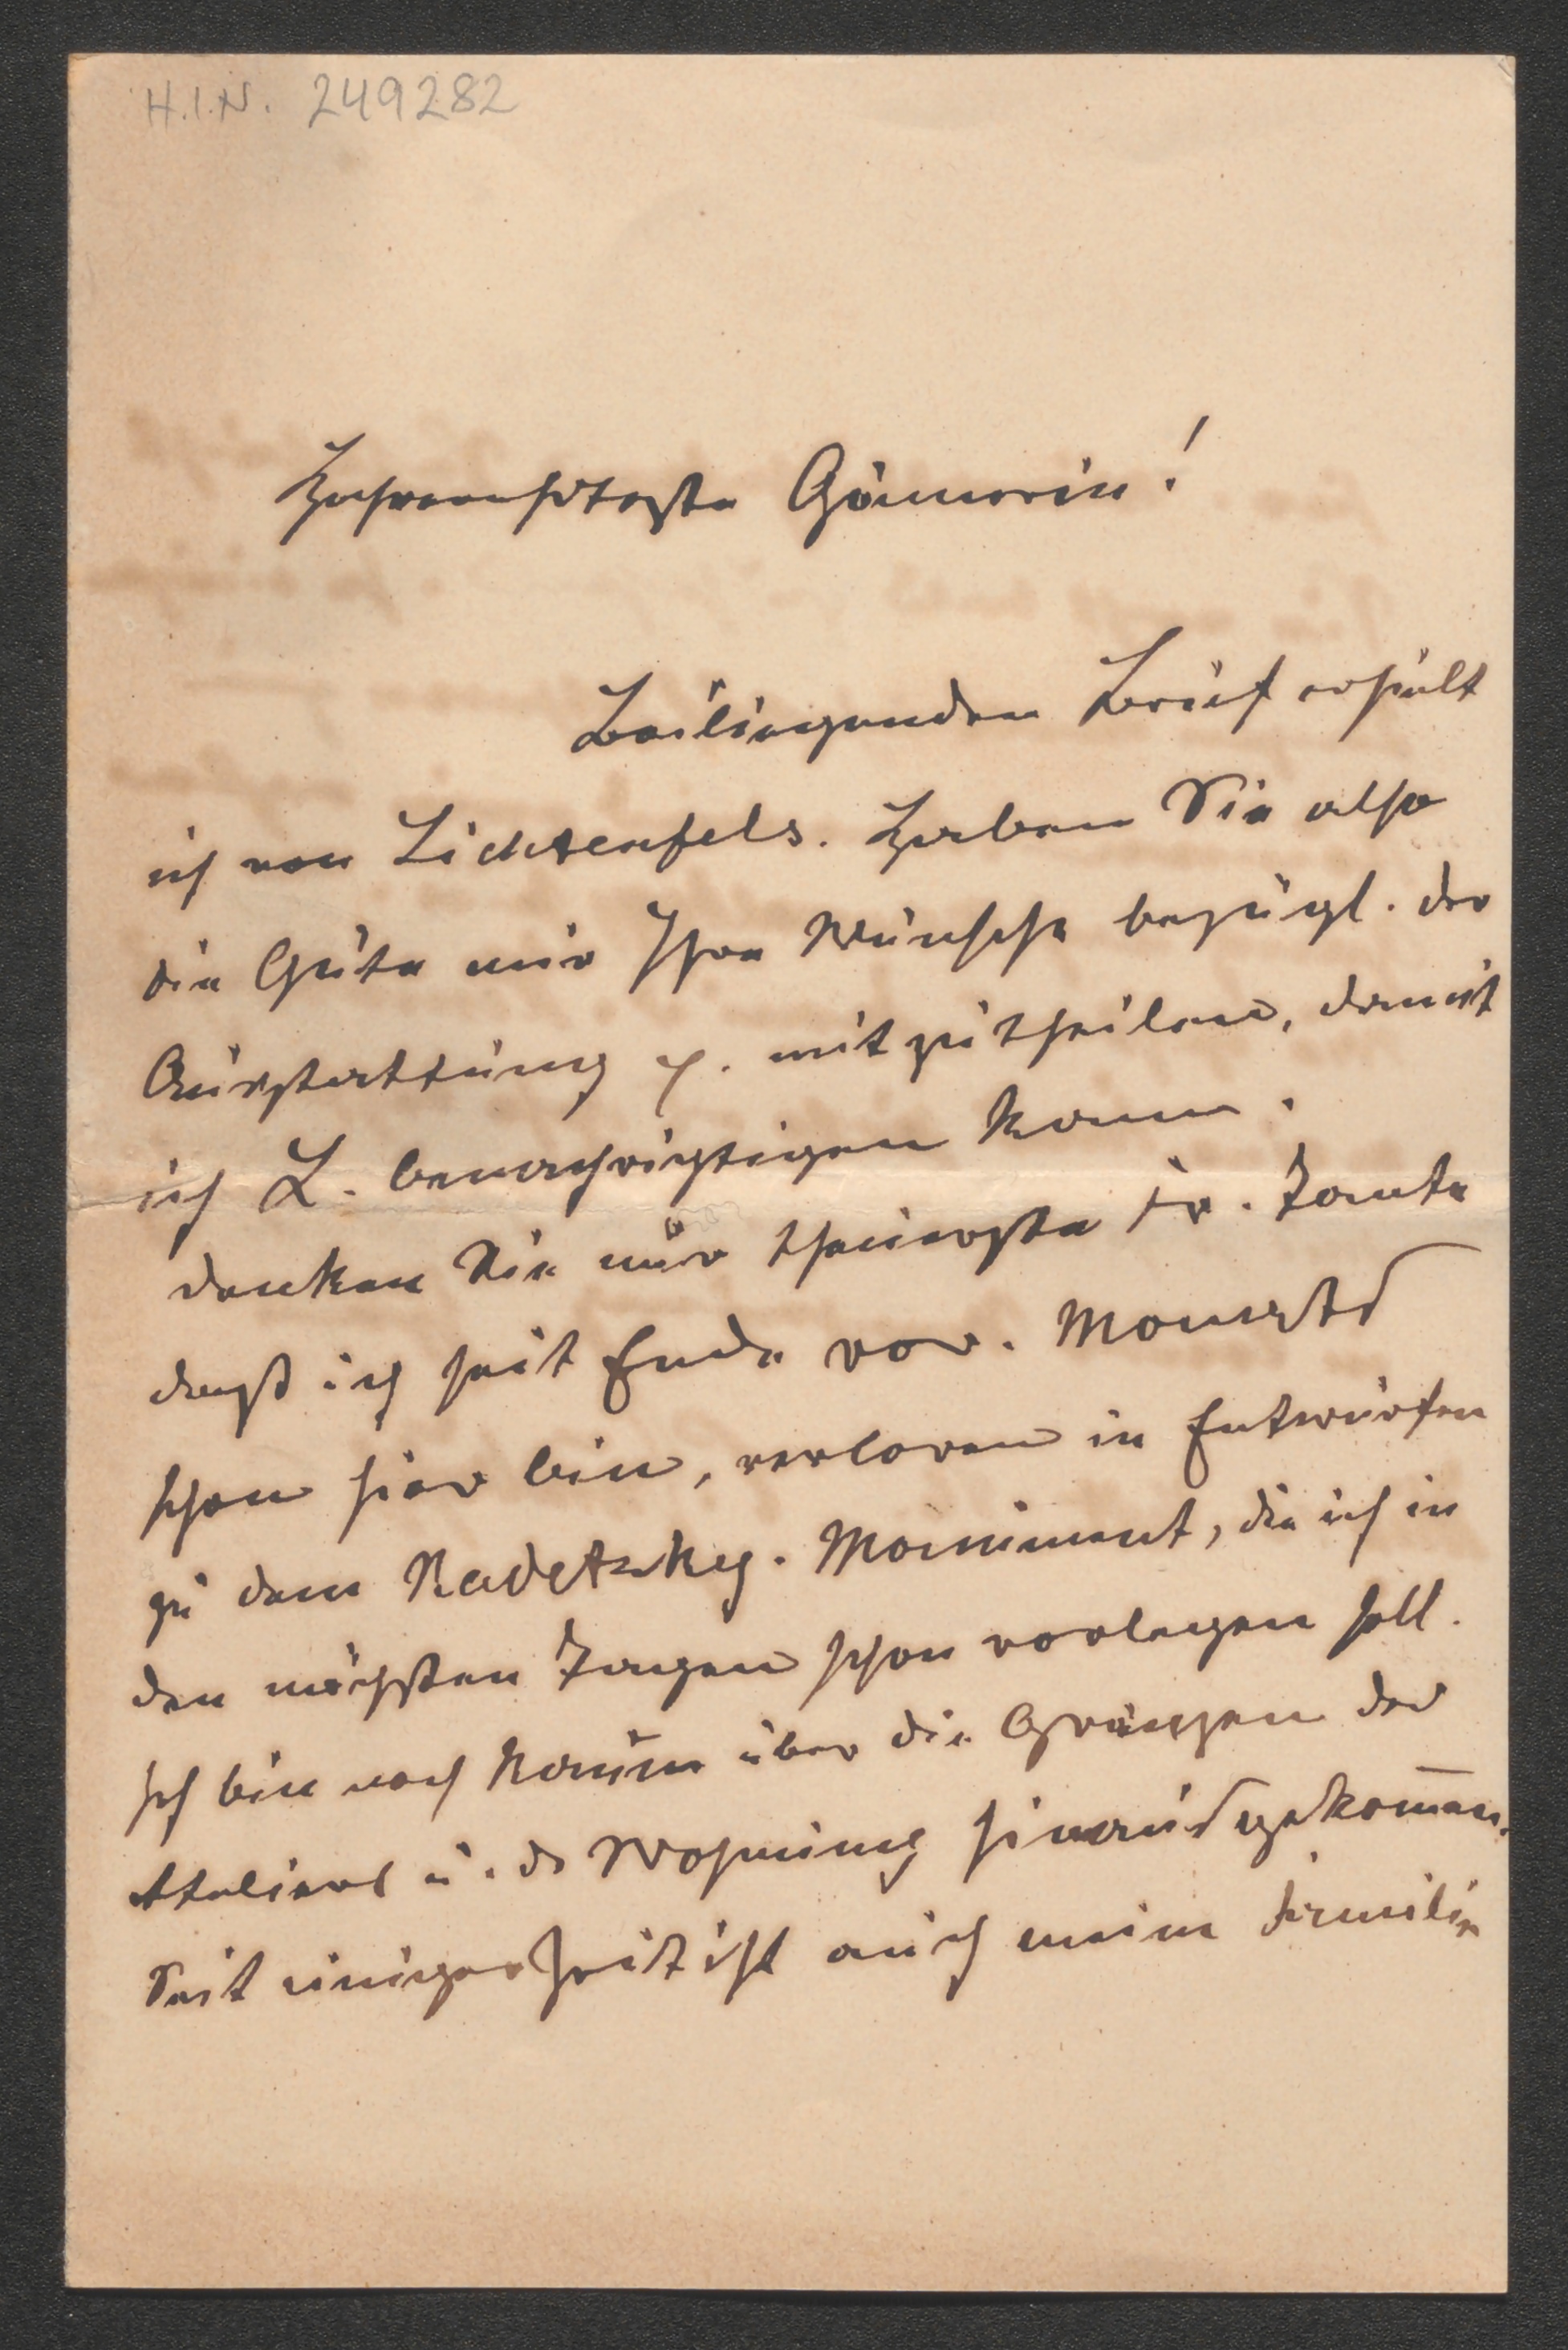 H.I.N. 249282
Hochverehrteste Gönnerin!
Beiliegenden Brief erhielt
ich von Lichtenfels. Haben Sie also
die Güte mir Ihre Wünsche bezügl. der
Ausstattung p. mitzutheilen, damit
ich L. benachrichtigen kann.
denken Sie nur theuerste Fr. Tante
daß ich seit Ende vor. Monats
schon hier bin, verloren in Entwürfen
zu dem Radetzky. Monument, die ich in
den nächsten Tagen schon vorlegen soll.
Ich bin noch kaum über die Gränzen des
Ateliers u. d. Wohnung hinausgekom̅en.
Seit einiger Zeit ist auch meine Familie